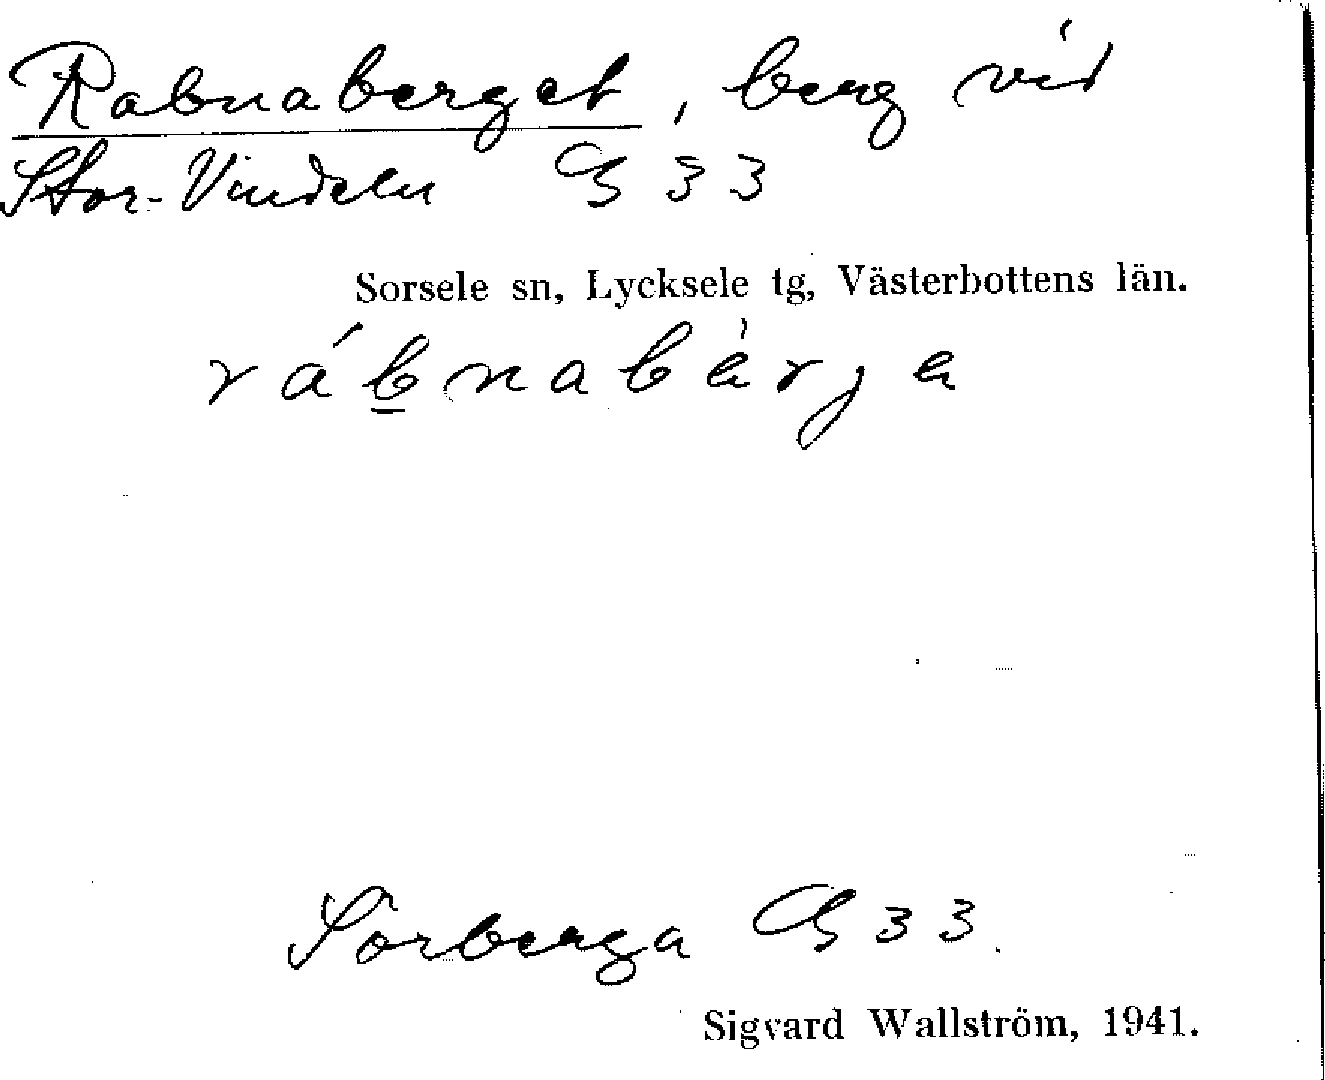 Rabnaberget, berg vid
Stor-Vindeln G 33
Sorsele sn, Lycksele tg, Västerbottens län.
rábnabàrja
Sörberga G 33.
Sigvard Wallström, 1941.